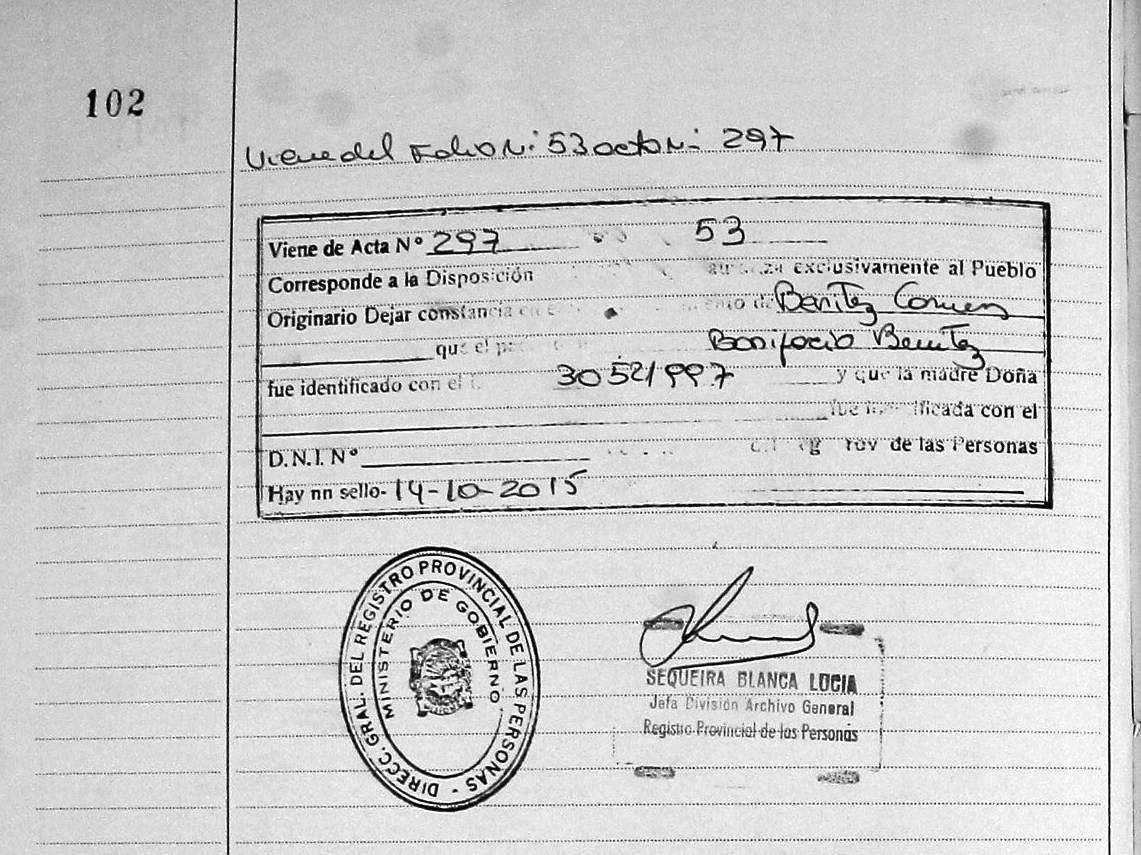 102
Viene del Folio N: 53 acta N: 297
Viene de Acta Nº 297 53
Corresponde a la Disposición exclusivamente al Pueblo
Originario Dejar constancia en Benitez
que el Bonifacio Benitez
fue identificado con el 30521997 y que la madre Doña
fue con el
D.N.I. Nº de las Personas
Hay nn sello- 14-10-2015
DIRECC. GRAL. DEL REGISTRO PROVINCIAL DE LAS PERSONAS -
MINISTERIO DE GOBIERNO
SEQUEIRA BLANCA LUCIA
Jefa División Archivo General
Registro Provincial de las Personas